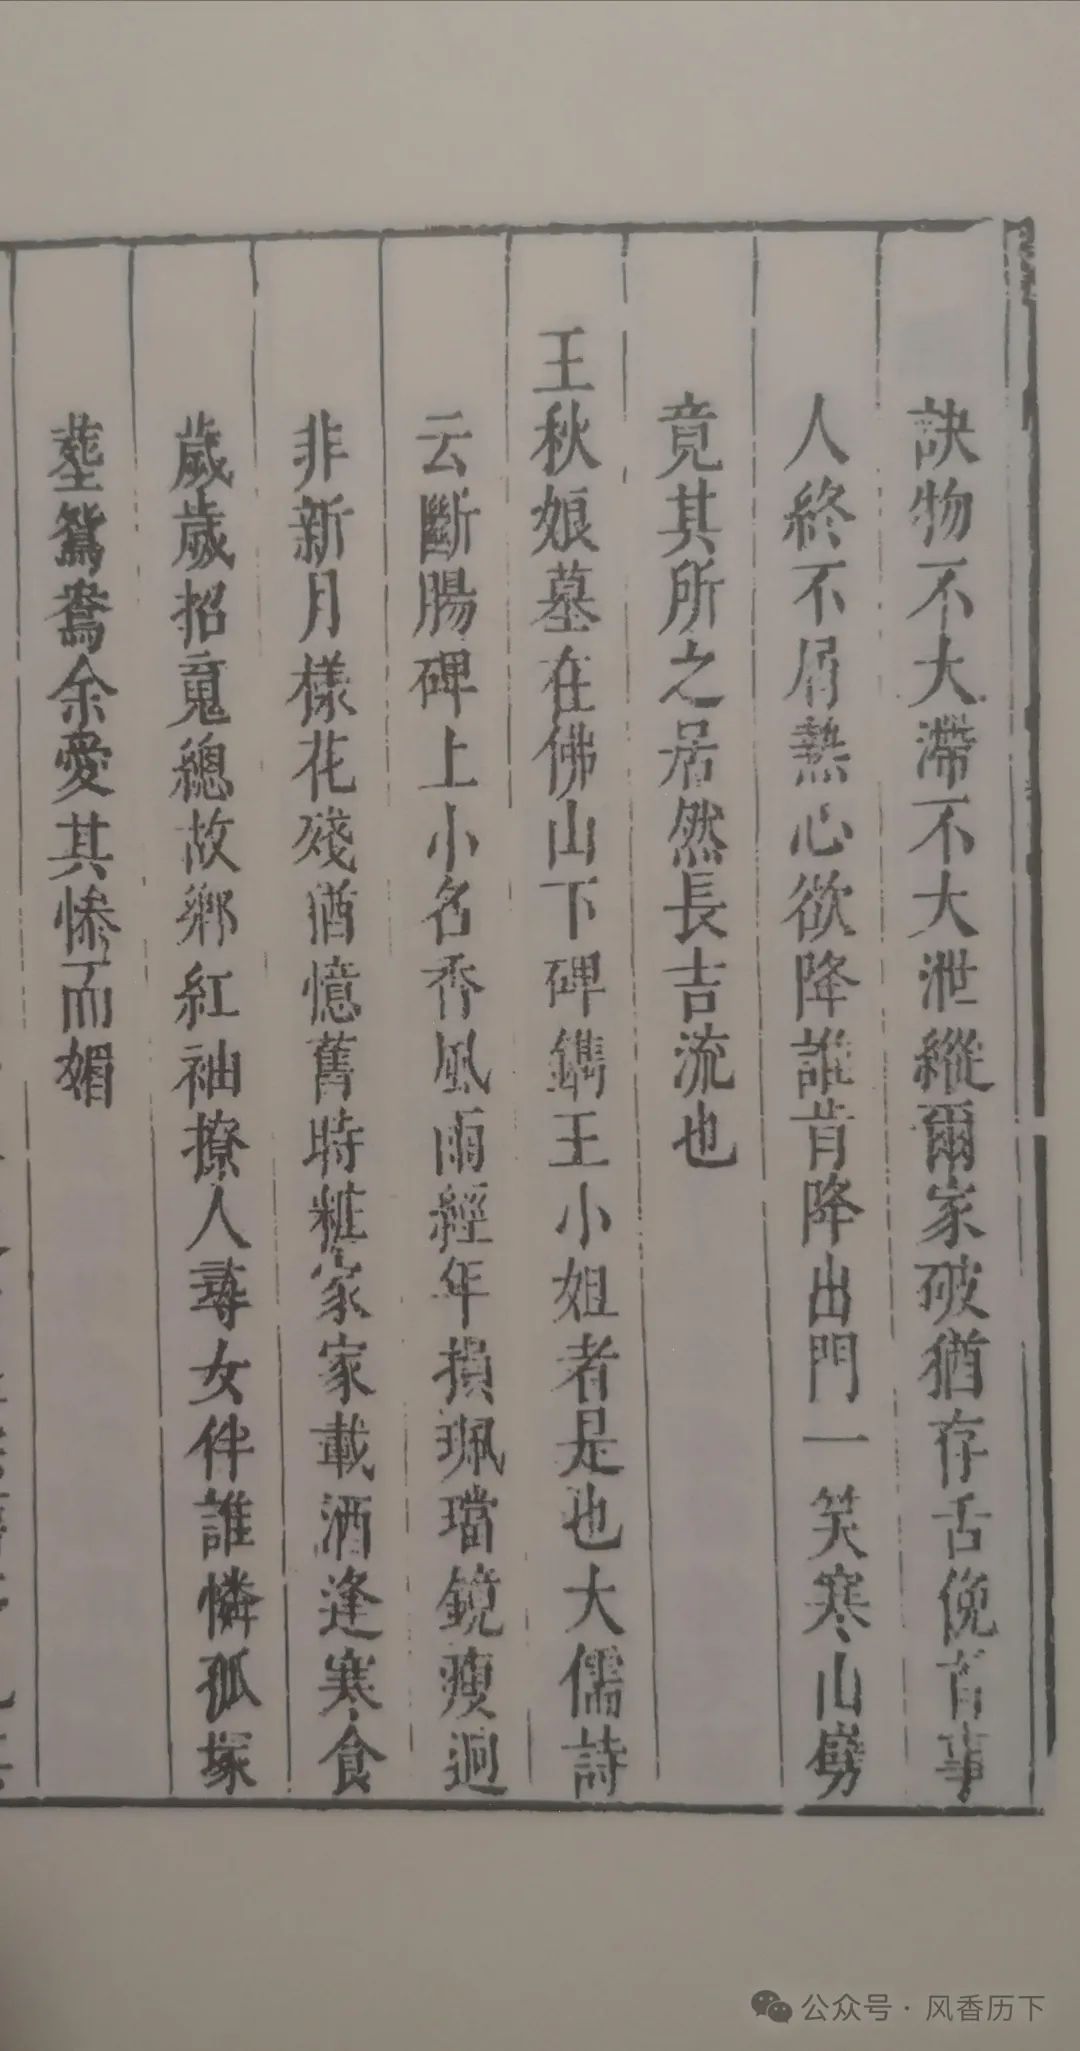 訣物不大滯不大泄縱爾家破猶存舌俛首事
人終不屑熱心欲降誰肯降出門一笑寒山嶴
竟其所之居然長吉流也
王秋娘墓在佛山下碑鐫王小姐者是也大儒詩
云斷腸碑上小名香風雨經年損珮璫鏡瘦迥
非新月樣花殘猶憶舊時粧家家載酒逢寒食
歲歲招䰟總故鄉紅袖撩人尋女伴誰憐孤塚
塟鴛鴦余愛其慘而媚
公众号·风香历下